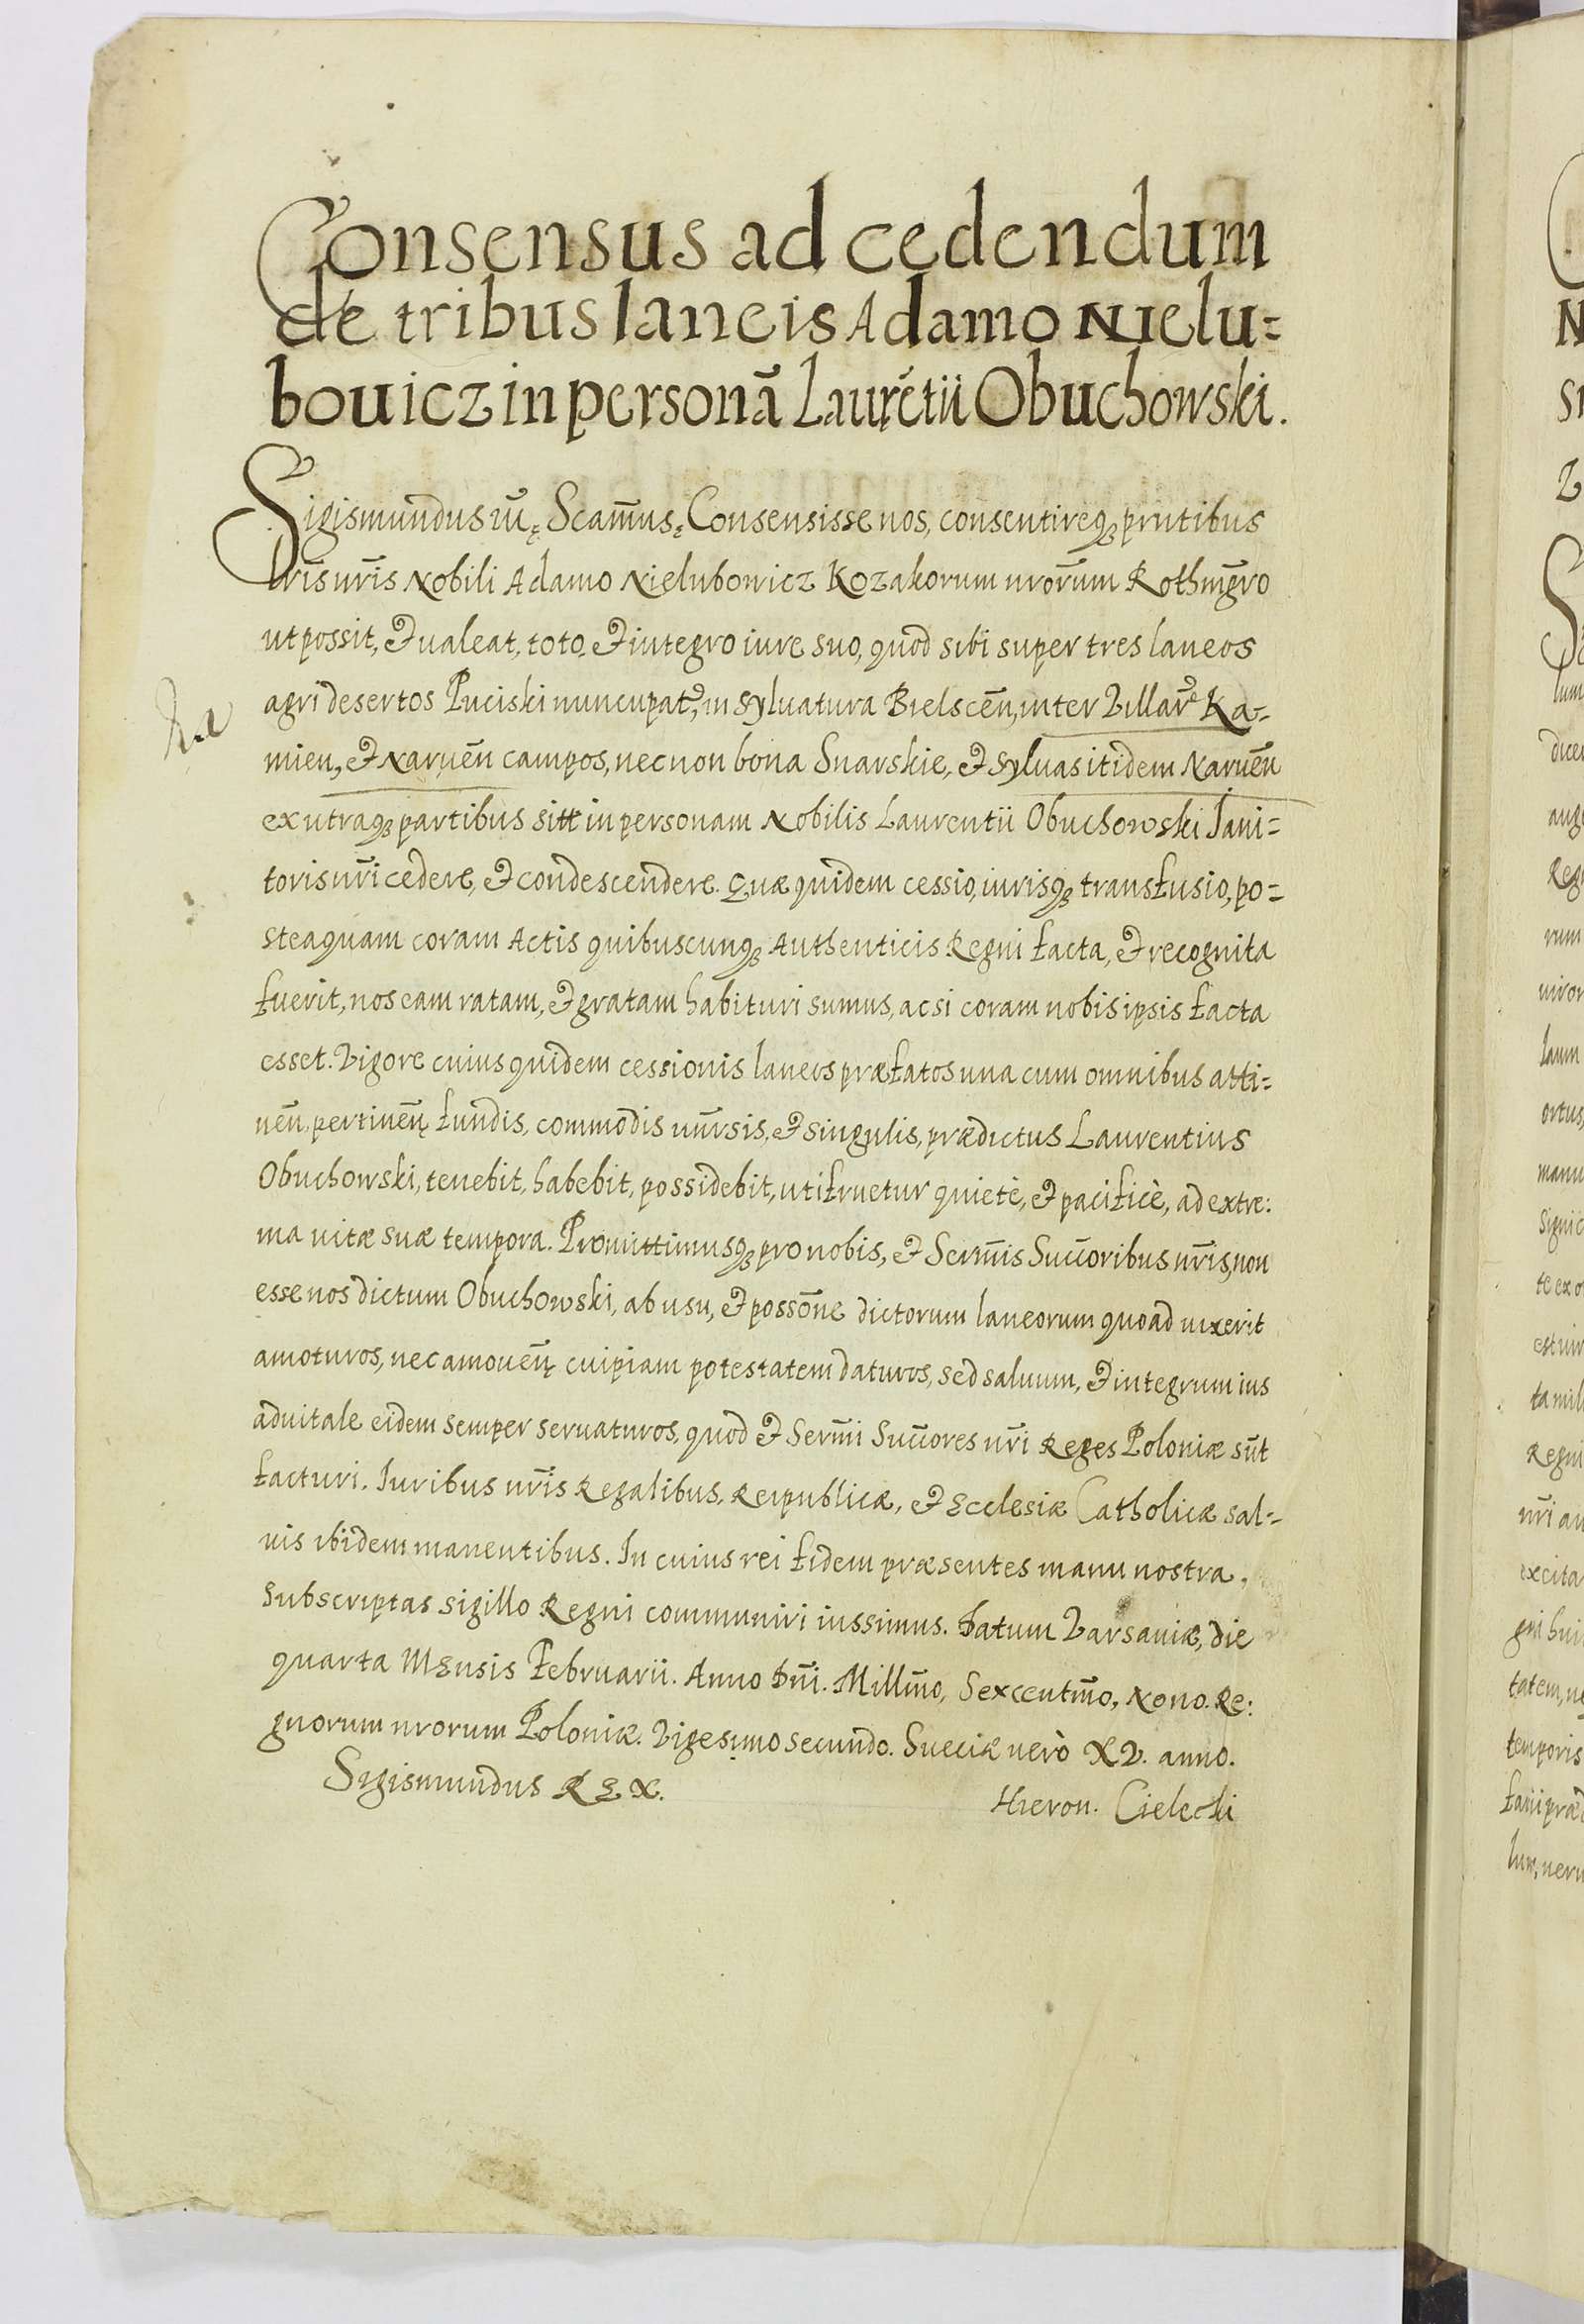 Consensus ad cedendum
de tribus laneis Adamo Nielu=
bouicz in personā Laurētii Obuchowski.
Sigismundus Scam̄us, Consensisse nos, consentireq₃ pn̄tibus
lrīs nr̄is Nobili Adamo Nielubowicz Kozakorum nrōrum Rothmgro
ut possit, & ualeat, toto, & integro iure suo, quod sibi super tres laneos
agri desertos Puciski nuncupat, in Syluatura Bielscen̄, inter Villar Ka=
mien, & Naruen̄ campos, necnon bona Suarskie, & Syluas itidem Naruen̄
ex utraq₃ partibus sitt in personam Nobilis Laurentii Obuchowski Jani=
toris nr̄i cedere, & condescendere. Quæ quidem cessio, iurisq₃ transfusio, po=
steaquam coram Actis quibuscunq₃ Authenticis Regni facta, & recognita
fuerit, nos eam ratam, & gratam habituri sumus, ac si coram nobis ipsis facta
esset. Vigore cuius quidem cessionis laneos præfatos una cum omnibus atti=
nen̄, pertinen̄ fundis, commodis un̄rsis, & singulis, prædictus Laurentius
Obuchowski, tenebit, habebit, possidebit, utifruetur quietè, & pacificè, ad extre:
ma uitæ suæ tempora. Promittimusq₃ pro nobis, & Serm̄is Succoribus nr̄is, non
esse nos dictum Obuchowski, ab usu, & possōne dictorum laneorum quoad uixerit
amoturos, nec amouen̄ cuipiam potestatem daturos, sed saluum, & integrum ius
aduitale eidem semper seruaturos, quod & Serm̄i Succores nr̄i Reges Poloniæ sūt
facturi. Iuribus nr̄is Regalibus, Reipublicæ, & Ecclesiæ Catholicæ sal=
uis ibidem manentibus. In cuius rei fidem præsentes manu nostra,
subscriptas sigillo Regni communiri iussimus. Datum Varsauiæ, die
quarta Mensis Februarii. Anno Dn̄i. Millm̄o, Sexcentm̄o, Nono. Re:
gnorum nrorum Poloniæ. Vigesimo secundo. Sueciæ uerò XV. anno.
Sigismundus REX.
Hieron. Cielecki